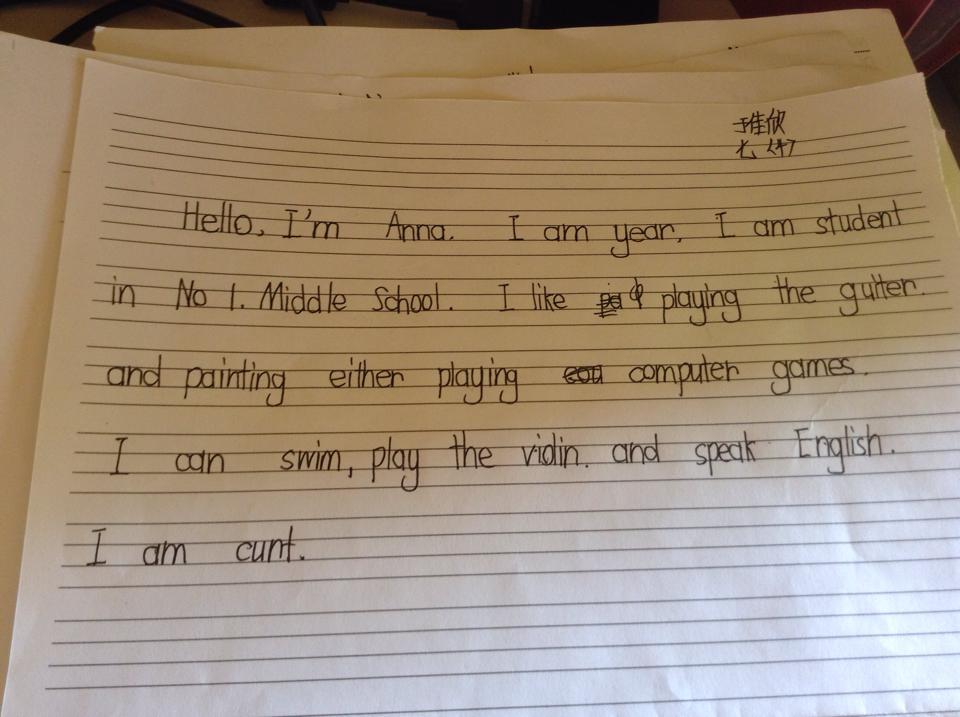 七〈4〉
Hello, I'm Anna. I am year, I am student
in No 1. Middle School. I like playing the guiter.
and painting either playing computer games.
I can swim, play the violin. and speak English.
I am cunt.